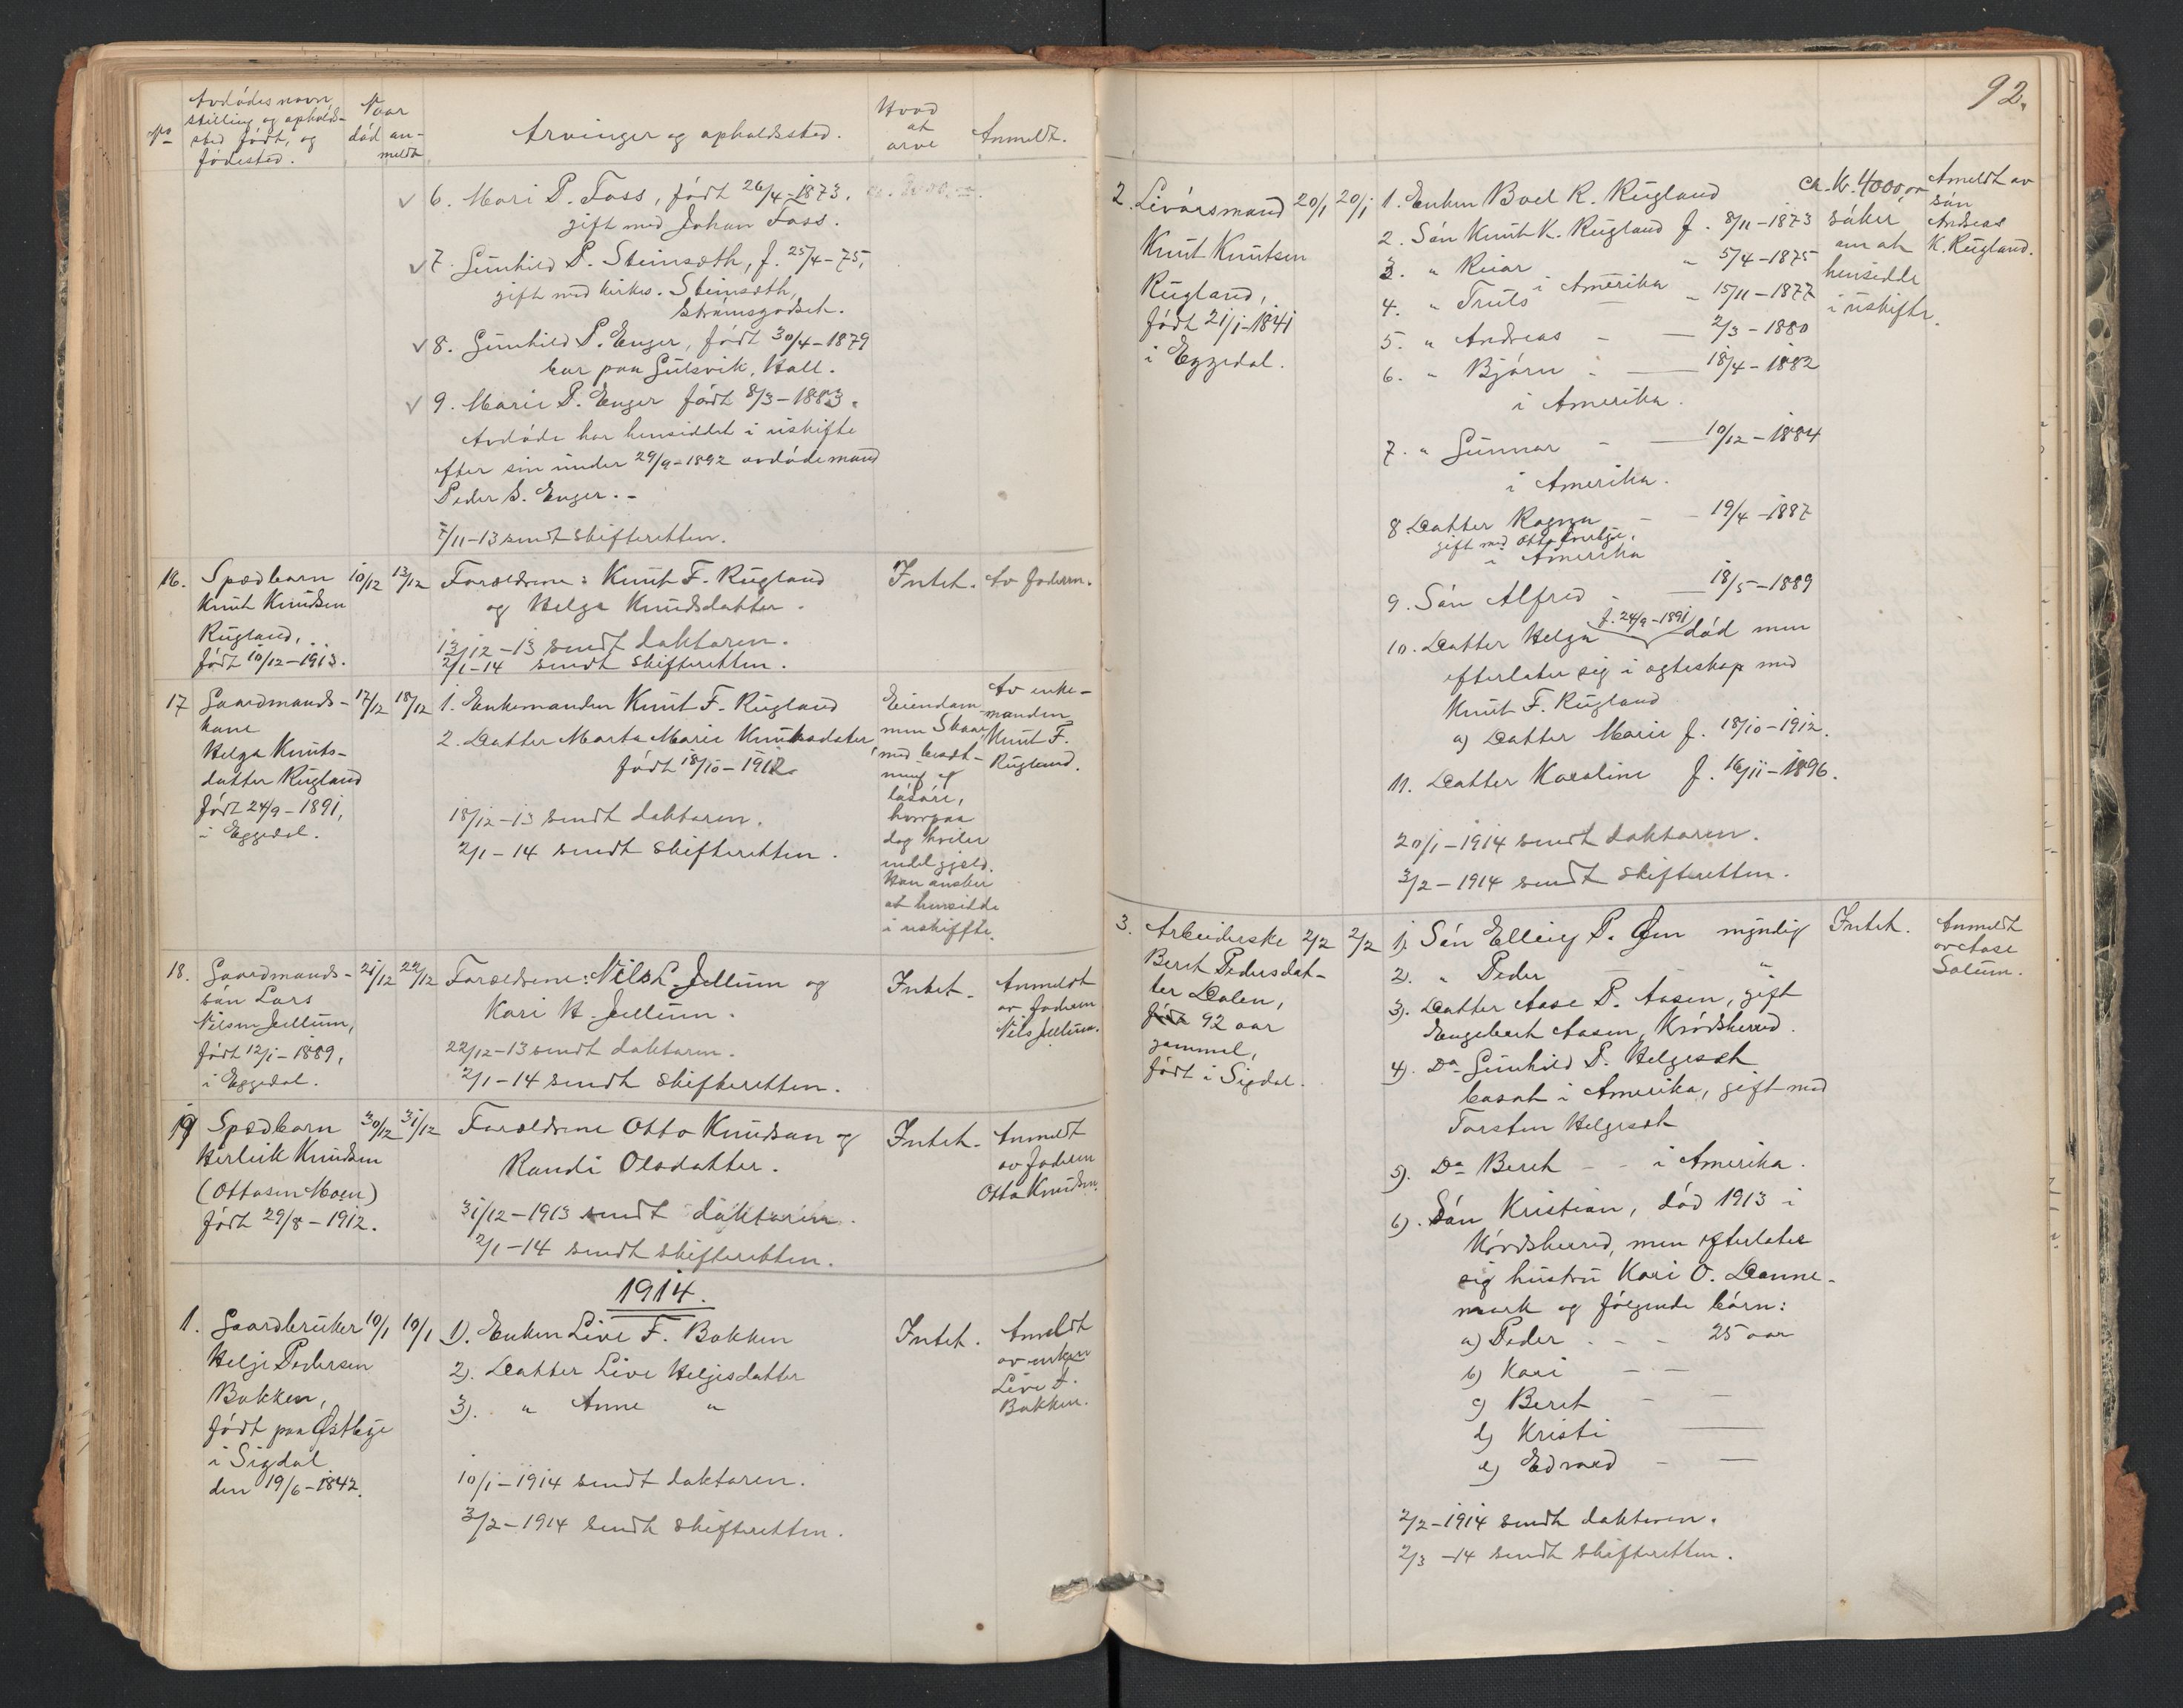 No
Avdødes navn,
stilling og opholds-
sted født, og
fødested.
Naar
død an-
meldt
Arvinger og opholdssted.
Hvad
at
arve
Anmeldt.
6. Mari P. Foss, født 26/4-1873.
gift med Johan Foss.
7. Gunhild P. Steinsæth, f. 25/4-75,
gift med kirkes. Steinsæth,
Strømsgodset.
8. Gunhild P. Enger, født 30/4-1879
bor paa Gulsvik, Hall.
9. Marie P. Enger født 8/3-1883.
Avdøde har hensiddet i uskifte
efter sin under 29/9-1892 avdøde mand
Peder S. Enger.-
7/11-13 sendt skifteretten.
16. Spædbarn 10/12 13/12 Forældrene: Knut F. Rugland Intet. Av faderen.
Knut Knudsen og Helga Knudsdatter.
Rugland, 13/12-13 sendt doktoren.
født 10/12-1913. 2/1-14 sendt skifteretten.
17 Gaardmands- 17/12 18/12 1. Enkemanden Knut F. Rugland
kone
Helga Knuts-
datter Rugland
født 24/9-1891,
i Eggedal.
2. Datter Marta Marie Knutsdatter,
født 18/10-1912.
18/12-13 sendt doktoren.
2/1-14 sendt skifteretten.
Eiendom-
men Skaar
med besæt-
ning og
løsøre,
hvorpaa
dog hviler
endel gjæld.
Han ønsker
at hensidde
i uskiffte.
Av enke-
manden
Knut F.
Rugland.
18. Gaardmands- 21/12 22/12 Forældrene: Nils L. Jellum og Intet.
søn Lars
Nilsen Jellum,
født 12/1-1889,
i Eggedal.
Kari H. Jellum.
22/12-13 sendt doktoren.
2/1-14 sendt skifteretten.
Anmeldt
av faderen
Nils Jellum.
19 Spædbarn 30/12 31/12 Forældrene Otto Knudsen og Intet.
Herleik Knudsen
(Ottosen Moen)
født 29/8-1912.
Randi Olsdatter.
31/12-1913 sendt doktoren.
2/1-14 sendt skifteretten.
Anmeldt
av faderen
Otto Knudsen.
1914.
1. Gaardbruker 10/1 10/1 1). Enken Live F. Bakken Intet.
Helge Pedersen
Bakken,
født paa Østbye
i Sigdal
den 19/6-1842.
2). Datter Live Helgesdatter
3). " Anne "
10/1-1914 sendt doktoren.
3/2-1914 sendt skifteretten.
Anmeldt
av enken
Live F.
Bakken.
92.
2. Livørsmand 20/1 20/1
Knut Knutsen
Rugland,
født 21/1-1841
i Eggedal.
1. Enken Boel R. Rugland
2. Søn Knut K. Rugland f. 8/11-1873
3. " Reiar " 5/4-1875
i Amerika
4. " Truls " 15/11-1877
5. " Andreas - 2/3-1880
6. " Bjørn - 18/4-1882
i Amerika.
7. " Gunnar - 10/12-1884
i Amerika.
8 Datter Ragna - 19/4-1887
gift med Otto
i Amerika
9. Søn Alfred - 18/5-1889
f. 24/9-1891
10. Datter Helga død men
efterlater sig i egteskap med
Knut F. Rugland
a) Datter Marie f. 18/10-1912.
11. Datter Karoline f. 16/11-1896.
20/1-1914 sendt doktoren.
3/2-1914 sendt skifteretten.
ca. Kr. 4000,00
søker
om at
hensidde
i uskifte.
Anmeldt av
søn
Andreas
K. Rugland.
3. Arbeiderske 2/2 2/2
Berit Pedersdat-
ter Dalen,
født 92 aar
gammel,
født i Sigdal.
1). Søn Elleig P. Øen myndig
2). " Peder "
3). Datter Aase P. Aasen, gift
Engebret Aasen, Krødsherred.
4). Do Gunhild P. Helgesæt
bosat i Amerika, gift med
Torsten Helgesæt
5). Do Berit - - i Amerika.
6). Søn Kristian, død 1913 i
Krødsherred, men efterlater
sig hustru Kari O. Danne-
mark og følgende børn:
a) Peder - - 25 aar
b) Kari - -
c) Berit - -
d) Kristi —
e) Edvard - -
2/2-1914 sendt doktoren.
2/3-14 sendt skifteretten.
Intet.
Anmeldt
av Aase
Solum.